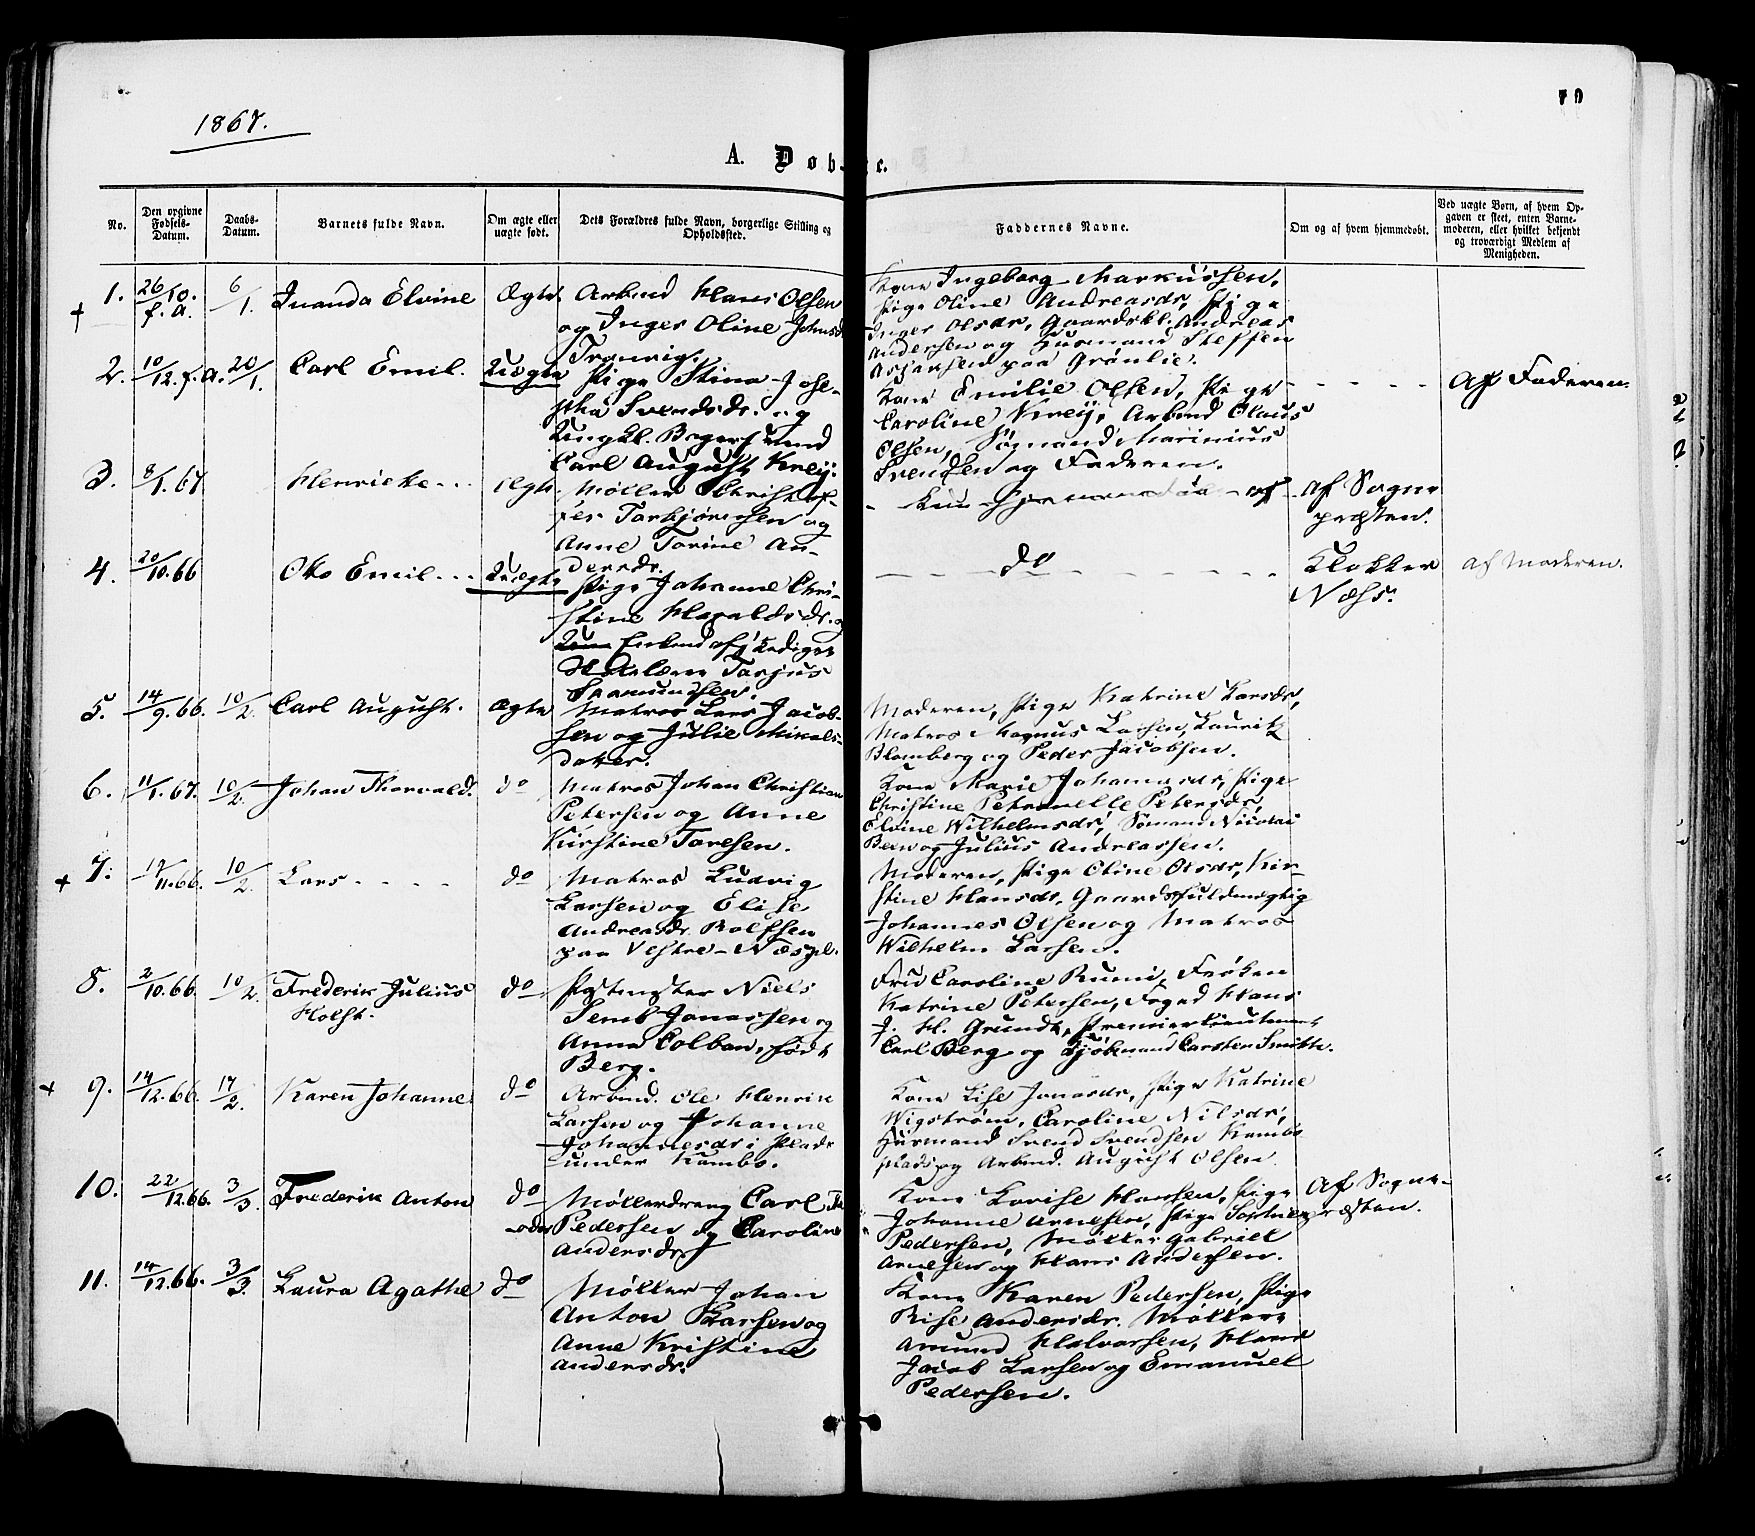 1867.
A. Døb- te.
No.
Den opgivne Fødsels-Datum.
Daabs-Datum.
Barnets fulde Navn.
Om ægte eller uægte født.
Dets Forældres fulde Navn, borgerlige Stilling og Opholdssted.
Faddernes Navne.
Om og af hvem hjemmedøbt.
Ved uægte Born, af hvem Opgaven er skeet, enten Barnemoderen, eller hvilket bekjendt og troværdigt Medlem af Menigheden.
1. 26/10. f. A. 6/1. Inanda Elvine Ægte
Arbmd Hans Olsen
og Inger Oline Johnsd
Tronvig.
Kone Ingeborg Markussen,
Pige Oline Andreasdr, Pige
Inger Olsdr, Gaardsbr. Andreas
Andersen og Husmand Steffen
paa Grønlie.
2. 10/12. f. A. 20/1. Carl Emil. Uægte
Pige Stina Jose-
pha Svendsdr. og
Ungkl.
Carl August Krey.
Kone Emilie Olsen, Pige
Caroline Krey, Arbmd Claus
Olsen, Sømand Marinius
Svendsen og Faderen.
Af Faderen.
3. 8/1. 67 Henricke Ægte
Møller Christof-
fer Torbjørnsen og
Anne Torine An-
dersdr.
Kun hjemmedøbt
af Sogne
præsten.
4. 20/10. 66 Oto Emil Uægte
Pige Johanne Chri-
stine Haraldsdr. og
Enkemd afskediget
Torjus
Sramundsen.
do
Klokker
Næss.
af Moderen.
5. 14/9. 66. 10/2. Carl August. Ægte
Matros Lars Jacob-
sen og Julie Mikals-
datter.
Moderen, Pige Katrine Larsdr,
Matros Magnus Larsen, Lauritz
Blomberg og Peder Jacobsen.
6. 11/1. 67. 10/2. Johan Thorvald. do
Matros Johan Christian
Petersen og Anne
Kirstine Toresen.
Kone Marie Johannesdr, Pige
Christine Petronelle Petersdr,
Elvine Wilhelmsdr, Sømand Nicolai
Bern og Julius Andreassen.
7. 11. 66. 10/2. Lars do
Matros Ludvig
Larsen og Elise
Andreasdr. Rolfsen
paa Vestre-Næs
Moderen, Pige Oline Olsdr, Kir-
stine Hansdr, Gaardsfuldmægtig
Johannes Olsen og Matros
Wilhelm Larsen.
8. 2/10. 66. 10/2. Frederik Julius
Holst. do
Postmester Niels
Semb Jonassen og
Anna Colban, født
Berg.
Fru Caroline Rumi, Frøken
Katrine Petersen, Foged Hans
J. H. Grundt, Premierlieutenant
Carl Berg og Kjøbmand Carsten Smith.
9. 14/12. 66. 17/2. Karen Johanne do
Arbmd. Ole Henrik
Larsen og Johanne
Johannesdr i Plads
under Kambo.
Kone Lise Jonasdr, Pige Katrine
Wigstrøm, Caroline Nilsdr,
Husmand Svend Svendsen Kambo
plads og Arbmd. August Olsen.
10. 22/12. 66. 3/3. Frederik Anton do
Møllerdreng Carl
Pedersen og Caroline
Andersdr
Kone Lovise Hansen, Pige
Johanne Arnesen, Pige Sophie
Pedersen, Møller Gabriel
Arnesen og Hans Andersen.
Af Sogne-
præsten.
11. 14/12. 66. 3/3. Laura Agathe do
Møller Johan
Anton Larsen og
Anne Kristine
Andersdr.
Kone Karen Pedersen, Pige
Rise Andersdr. Møllere
Amund Halvorsen, Hans
Jacob Larsen og Emanuel
Pedersen.